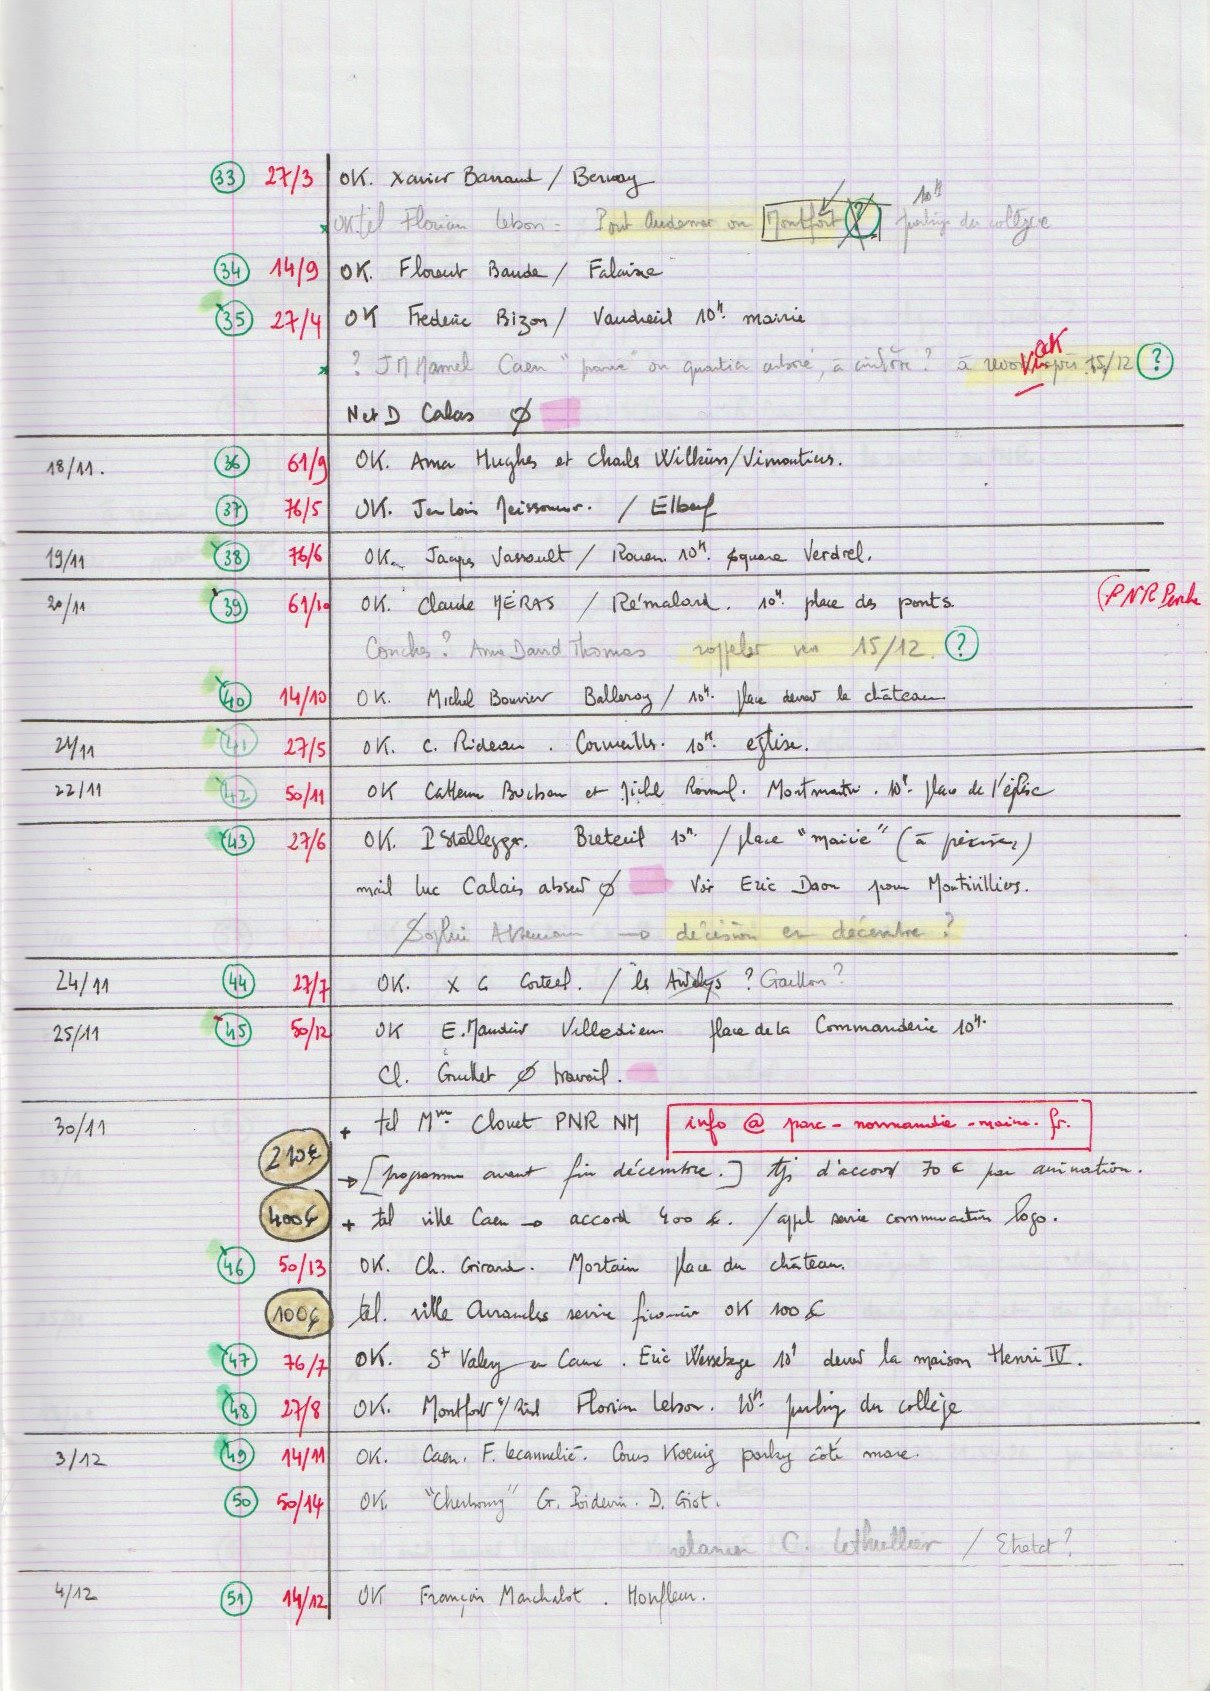 33 27/3 OK. Xavier Barraud / Bernay
10H
OK tel Florian Lebon = Pont Audemer ou Montfort ? parking du collège
34 14/9 OK. Florent Baude / Falaise
35 27/4 OK Frédéric Bizon / Vaudreuil 10H mairie
OK
? JM Mamel Caen " " ou quartier arboré, à ? à revoir après 15/12 ?
N et D Calais Ø
18/11. 36 61/9 OK. Anna Hughes et Charles Wilkins/Vimoutiers.
37 76/5 OK. Jean Louis . / Elbeuf
19/11 38 76/6 OK. Jacques Vassault / Rouen. 10H. square Verdrel.
20/11 39 61/10 OK. Claude MÉRAS / Rémalard. 10H. place des ponts. (PNR Perche
Conches? Anna David Thomas rappeler vers 15/12. ?
40 14/10 OK. Michel Bouvier Balleroy / 10H. place devant le château
21/11 41 27/5 OK. C. Rideau. Cormeilles. 10H. église.
22/11 42 50/11 OK Catherine et . Montmartin. 10H. place de l'église
43 27/6 OK. P Stallegger. Breteuil 10H. / place "mairie" (à préciser)
mail Luc Calais absent Ø Voir Eric Daon pour Montivilliers.
Sophie → décision en décembre ?
24/11 44 27/7 OK. X G Corteel. / les Andelys ? Gaillon ?
25/11 45 50/12 OK E. Villedieu place de la Commanderie 10H.
Cl. Guillet Ø travail.
30/11 + tel Mme Clouet PNR NM info @ parc-normandie-maine.fr.
210€ → [programme avant fin décembre.] tjs d'accord 70 € par animation.
400€ + tel ville Caen → accord 400 €. / appel service communication logo.
46 50/13 OK. Ch. Girard. Mortain place du château.
100€ tel. ville Avranches service financier OK 100 €
47 76/7 OK. St Valery en Caux. Eric 10H devant la maison Henri IV.
48 27/8 OK. Montfort s/Risle Florian Lebon. 10H. parking du collège
3/12 49 14/11 OK. Caen. F. Lecannelié. Cours Koenig parking côté mare.
50 50/14 OK. "Cherbourg" G. Poidevin. D. Giot.
relancer C. Lethuillier / Etretat ?
4/12 51 14/12 OK François Marchalot. Honfleur.